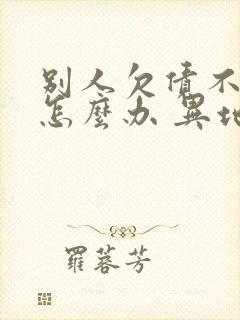 别人欠债不
怎麼办 異地
羅蓉芳